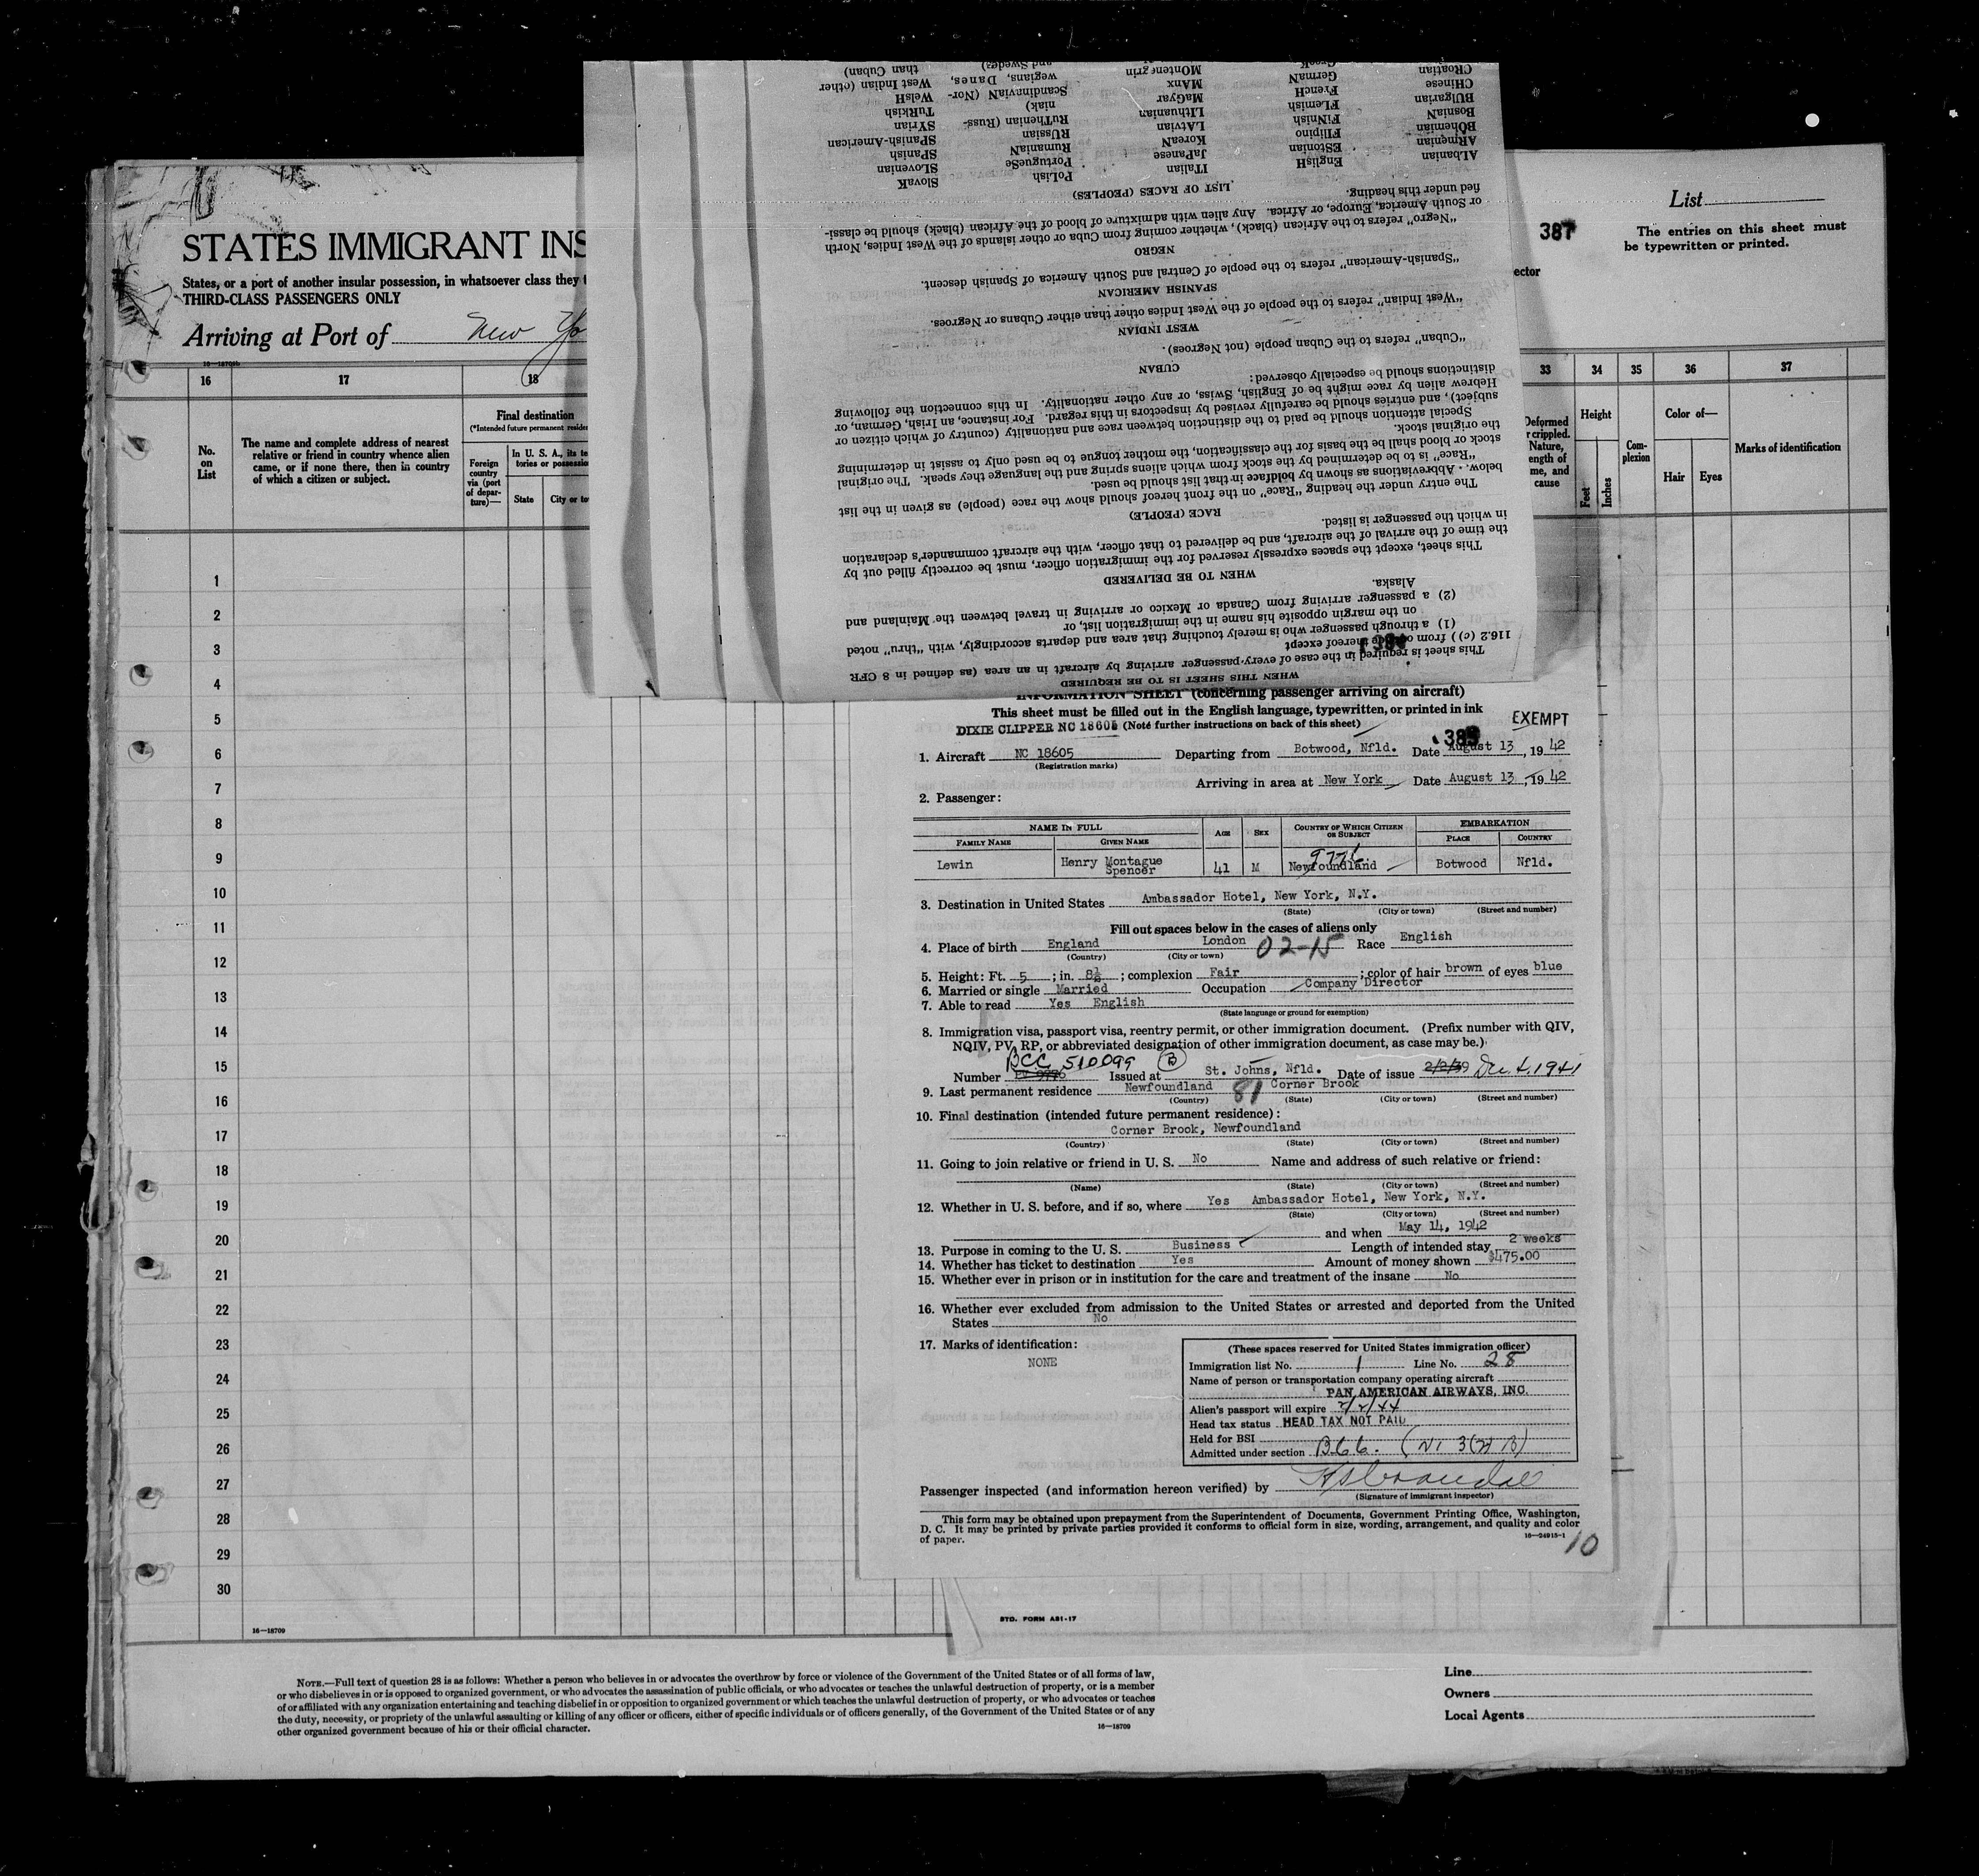 STATES IMMIGRANT INS
States, or a port of another insular possession, in whatsoever class they t
THIRD-CLASS PASSENGERS ONLY
Arriving at Port of New Yo
16—18709b
16 17 18
No. on List
The name and complete address of nearest
relative or friend in country whence alien
came, or if none there, then in country
of which a citizen or subject.
Final destination
(*Intended future permanent reside
Foreign
country
via (port
of depar-
ture)—
In U. S. A., its te
tories or possessio
State City or to
1
2
3
4
5
6
7
8
9
10
11
12
13
14
15
16
17
18
19
20
21
22
23
24
25
26
27
28
29
30
16—18709
List
387
The entries on this sheet must
be typewritten or printed.
ector
33 34 35 36 37
Deformed
r crippled.
Nature,
ength of
me, and
cause
Height
Feet Inches
Com-
plexion
Color of—
Hair Eyes
Marks of identification
WHEN THIS SHEET IS TO BE REQUIRED
This sheet is required in the case of every passenger arriving by aircraft in an area (as defined in 8 CFR
116.2 (c)) from outside thereof except
(1) a through passenger who is merely touching that area and departs accordingly, with "thru" noted
on the margin opposite his name in the immigration list, or
(2) a passenger arriving from Canada or Mexico or arriving in travel between the Mainland and
Alaska.
WHEN TO BE DELIVERED
This sheet, except the spaces expressly reserved for the immigration officer, must be correctly filled out by
the time of the arrival of the aircraft, and be delivered to that officer, with the aircraft commander's declaration
in which the passenger is listed.
RACE (PEOPLE)
The entry under the heading "Race" on the front hereof should show the race (people) as given in the list
below. Abbreviations as shown by boldface in that list should be used.
"Race" is to be determined by the stock from which aliens spring and the language they speak. The original
stock or blood shall be the basis for the classification, the mother tongue to be used only to assist in determining
the original stock.
Special attention should be paid to the distinction between race and nationality (country of which citizen or
subject), and entries should be carefully revised by inspectors in this regard. For instance, an Irish, German, or
Hebrew alien by race might be of English, Swiss, or any other nationality. In this connection the following
distinctions should be especially observed:
CUBAN
"Cuban" refers to the Cuban people (not Negroes).
WEST INDIAN
"West Indian" refers to the people of the West Indies other than either Cubans or Negroes.
SPANISH AMERICAN
"Spanish-American" refers to the people of Central and South America of Spanish descent.
NEGRO
"Negro" refers to the African (black), whether coming from Cuba or other islands of the West Indies, North
or South America, Europe, or Africa. Any alien with admixture of blood of the African (black) should be classi-
fied under this heading.
LIST OF RACES (PEOPLES)
ALbanian EnglisH ITalian PoLish SlovaK
ARmenian EStonian JaPanese PortugueSe SLOvenian
BOhemian FIlipino KoreaN RumaniaN SPanish
BosniaN FiNnish LAtvian RUSsian SPanish-American
BUlgarian FLemish LIthuanian RuThenian (Russ- SYrian
niak) TuRkish
CHinese FrencH MaGyar ScandinaviaN (Nor- WelsH
CRoatian GermaN MAnx wegians, Danes, West Indian (other
GreeK MOntenegrin and Swedes) than Cuban)
INFORMATION SHEET (concerning passenger arriving on aircraft)
This sheet must be filled out in the English language, typewritten, or printed in ink
DIXIE CLIPPER NC 18605 (Note further instructions on back of this sheet)
EXEMPT
385
1. Aircraft NC 18605 Departing from Botwood, Nfld. Date August 13, 1942
(Registration marks)
Arriving in area at New York Date August 13, 1942
2. Passenger:
NAME IN FULL AGE SEX COUNTRY OF WHICH CITIZEN OR SUBJECT EMBARKATION
FAMILY NAME GIVEN NAME PLACE COUNTRY
Lewin Henry Montague Spencer 41 M Newfoundland Botwood Nfld.
3. Destination in United States Ambassador Hotel, New York, N.Y.
(State) (City or town) (Street and number)
Fill out spaces below in the cases of aliens only
4. Place of birth England London 02-15 Race English
(Country) (City or town)
5. Height: Ft. 5; in. 8½; complexion Fair; color of hair brown of eyes blue
6. Married or single Married Occupation Company Director
7. Able to read Yes English
(State language or ground for exemption)
8. Immigration visa, passport visa, reentry permit, or other immigration document. (Prefix number with QIV,
NQIV, PV, RP, or abbreviated designation of other immigration document, as case may be.)
BCC 510099 B
Number Issued at St. Johns, Nfld. Date of issue 2/2/39 Dec 4, 1941
9. Last permanent residence Newfoundland 81 Corner Brook
(Country) (State) (City or town) (Street and number)
10. Final destination (intended future permanent residence):
Corner Brook, Newfoundland
(Country) (State) (City or town) (Street and number)
11. Going to join relative or friend in U. S. No Name and address of such relative or friend:
(Name) (State) (City or town) (Street and number)
12. Whether in U. S. before, and if so, where Yes Ambassador Hotel, New York, N.Y.
(State) (City or town) (Street and number)
and when May 14, 1942
13. Purpose in coming to the U. S. Business Length of intended stay 2 weeks
14. Whether has ticket to destination Yes Amount of money shown $475.00
15. Whether ever in prison or in institution for the care and treatment of the insane No
16. Whether ever excluded from admission to the United States or arrested and deported from the United
States No
17. Marks of identification:
NONE
(These spaces reserved for United States immigration officer)
Immigration list No. 1 Line No. 28
Name of person or transportation company operating aircraft
PAN AMERICAN AIRWAYS, INC.
Alien's passport will expire 2/2/44
Head tax status HEAD TAX NOT PAID
Held for BSI
Admitted under section
Passenger inspected (and information hereon verified) by
(Signature of immigrant inspector)
This form may be obtained upon prepayment from the Superintendent of Documents, Government Printing Office, Washington,
D. C. It may be printed by private parties provided it conforms to official form in size, wording, arrangement, and quality and color
of paper.
16—24915-1
10
STD. FORM AS1-17
NOTE.—Full text of question 28 is as follows: Whether a person who believes in or advocates the overthrow by force or violence of the Government of the United States or of all forms of law,
or who disbelieves in or is opposed to organized government, or who advocates the assassination of public officials, or who advocates or teaches the unlawful destruction of property, or is a member
of or affiliated with any organization entertaining and teaching disbelief in or opposition to organized government or which teaches the unlawful destruction of property, or who advocates or teaches
the duty, necessity, or propriety of the unlawful assaulting or killing of any officer or officers, either of specific individuals or of officers generally, of the Government of the United States or of any
other organized government because of his or their official character.
16—18709
Line
Owners
Local Agents